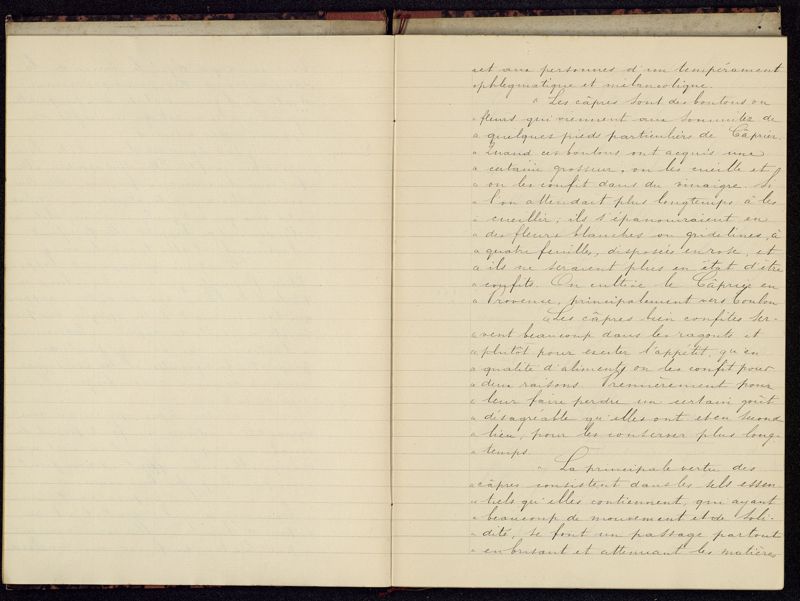 «et aux personnes d'un tempérament
«phlegmatique et mélancolique.
« Les câpres sont des boutons ou
« fleurs qui viennent aux sommités de
« quelques pieds particuliers de Câprier.
« Quand ces boutons ont acquis une
« certaine grosseur, on les cueille et
« on les confit dans du vinaigre. Si
« l'on attendait plus longtemps à les
« cueillir, ils s'épanouiraient en
« des fleurs blanches ou gridelines, à
« quatre feuilles, disposées en rose, et
« ils ne seraient plus en état d'être
« confits. On cultive le Câprier en
« Provence, principalement vers Toulon
« Les câpres bien confites ser-
« vent beaucoup dans les ragouts et
« plutôt pour exciter l'appétit, qu'en
« qualité d'aliments on les confit pour
« deux raisons. Premièrement pour
« leur faire perdre un certain goût
« désagréable qu'elles ont et en second
« lieu, pour les conserver plus long-
« temps.
« La principale vertu des
« câpres consistent dans les sels essen-
« tiels qu'elles contiennent, qui ayant
« beaucoup de mouvement et de soli-
« dité, se font un passage partout
« en brisant et attenuant les matières